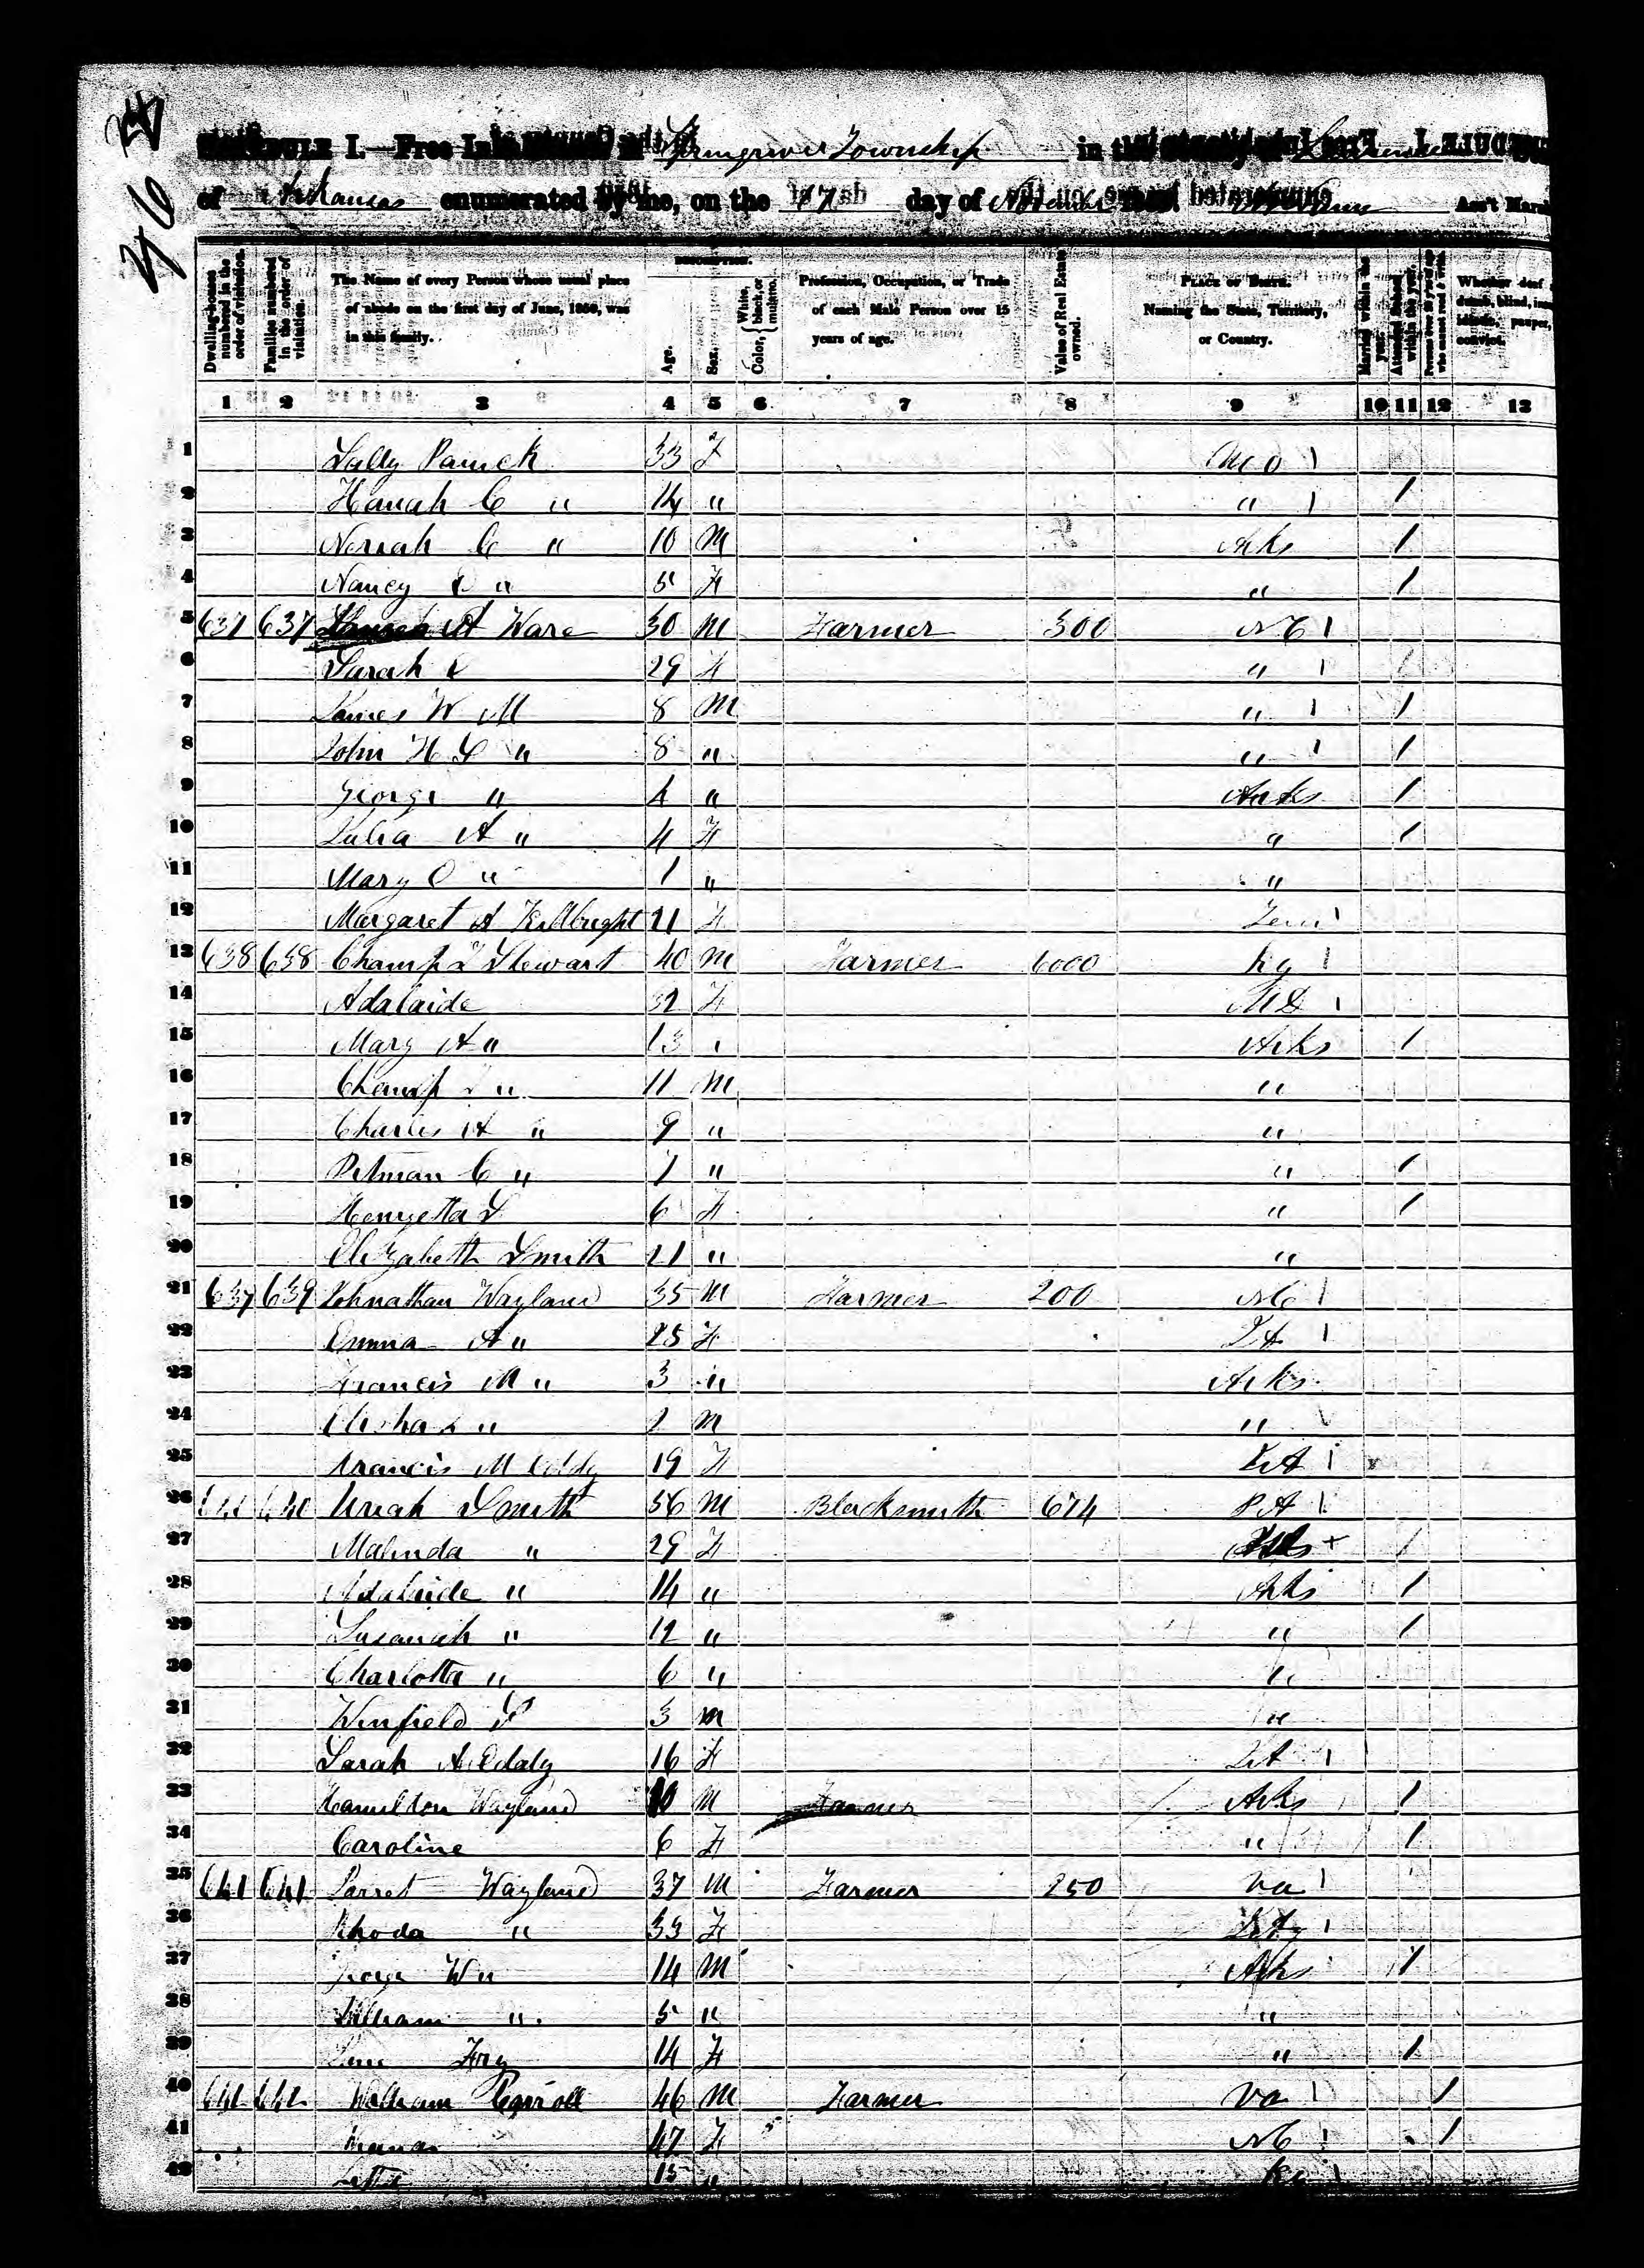 SCHEDULE I.—Free Inhabitants in Township in the
of Arkansas enumerated by me, on the 17th day of Ass't Marsh
Dwelling-houses numbered in the order of visitation.
Families numbered in the order of visitation.
The Name of every Person whose usual place of abode on the first day of June, 1850, was in this family.
DESCRIPTION.
Age.
Sex.
Color, { White, black, or mulatto.
Profession, Occupation, or Trade of each Male Person over 15 years of age.
Value of Real Estate owned.
PLACE OF BIRTH. Naming the State, Territory, or Country.
Married within the year.
Attended School within the year.
Persons over 20 y'rs of age who cannot read & write.
Whether deaf dumb, blind, insane, idiotic, pauper, convict.
1 2 3 4 5 6 7 8 9 10 11 12 13
1 Sally 33 F Mo 1
2 Hanah C " 14 " " 1 1
3 C " 10 M Arks 1
4 Nancy " 5 F " 1
5 637 637 A Ware 30 M Farmer 300 NC 1
6 Sarah 29 F " 1
7 James W M 8 M " 1 1
8 John H L " 8 " " 1 1
9 George " 4 " Arks 1
10 Julia A " 4 F " 1
11 Mary " 1 " "
12 Margaret A 21 F Tenn 1
13 638 638 Champ T Stewart 40 M Farmer 6000 Ky 1
14 Adalaide 32 F 1
15 Mary A " 13 Arks 1
16 Champ " 11 M "
17 Charles A " 9 " "
18 Pitman C " 7 " " 1
19 6 F " 1
20 Elizabeth Smith 21 " "
21 639 639 Johnathan Wayland 35 M Farmer 200 NC 1
22 Emma A " 25 F 1
23 Francis M " 3 " Arks
24 Elisha " 2 M "
25 Francis M 19 F 1
26 640 Uriah Smith 56 M Blacksmith 674 PA 1
27 Malinda " 29 F + 1
28 Adalaide " 14 " Arks 1
29 Susanah " 12 " " 1
30 Charlotta " 6 " "
31 Winfield S 3 M "
32 Sarah A 16 F 1
33 Hamilton Wayland 10 M Farmer Arks 1
34 Caroline 6 F " 1
35 641 641 Jarret Wayland 37 M Farmer 250 Va 1
36 Rhoda " 33 F 1
37 George W " 14 M Arks 1
38 William " 5 " "
39 Fry 14 F " 1
40 642 642 William Carroll 46 M Farmer Va 1 1
41 47 F NC 1 1
42 15 " Ky 1